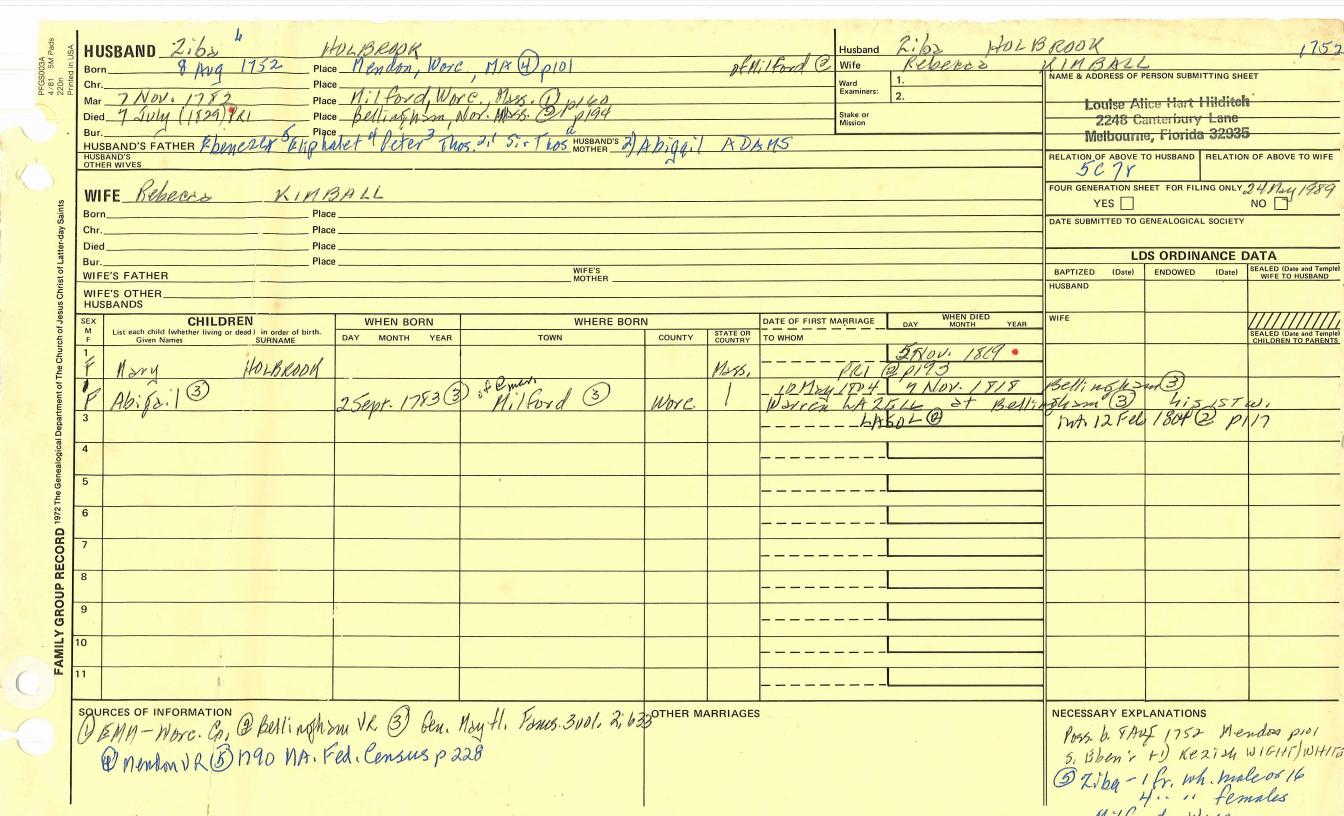 PFGS003A
4/81 5M Pads
220n
Printed in USA
FAMILY GROUP RECORD 1972 The Genealogical Department of The Church of Jesus Christ of Latter-day Saints
HUSBAND Ziba HOLBROOK
Born 8 Aug 1752 Place Mendon, Worc, MA ④ p101 of Milford ②
Chr. Place
Mar 7 Nov. 1782 Place Milford, Worc., Mass. ① p160
Died 7 July (1829) PR1 Place Bellingham, Nor. Mass. ② p194
Bur. Place
HUSBAND'S FATHER Ebenezer 5 Eliphalet 4 Peter 3 Thos. 2, 1 HUSBAND'S MOTHER 2) Abigail ADAMS
HUSBAND'S OTHER WIVES
WIFE Rebecca KIMBALL
Born Place
Chr. Place
Died Place
Bur. Place
WIFE'S FATHER WIFE'S MOTHER
WIFE'S OTHER HUSBANDS
Husband Ziba HOLBROOK 1752
Wife Rebecca KIMBALL
Ward Examiners: 1.
2.
Stake or Mission
NAME & ADDRESS OF PERSON SUBMITTING SHEET
Louise Alice Hart Hilditch
2248 Canterbury Lane
Melbourne, Florida 32935
RELATION OF ABOVE TO HUSBAND RELATION OF ABOVE TO WIFE
5C 7r
FOUR GENERATION SHEET FOR FILING ONLY 24 May 1989
YES NO
DATE SUBMITTED TO GENEALOGICAL SOCIETY
LDS ORDINANCE DATA
BAPTIZED (Date) ENDOWED (Date) SEALED (Date and Temple) WIFE TO HUSBAND
HUSBAND
WIFE
SEALED (Date and Temple) CHILDREN TO PARENTS
SEX M F CHILDREN WHEN BORN WHERE BORN DATE OF FIRST MARRIAGE WHEN DIED
List each child (whether living or dead) in order of birth. DAY MONTH YEAR
Given Names SURNAME DAY MONTH YEAR TOWN COUNTY STATE OR COUNTRY TO WHOM
1 5 Nov. 1819
F Mary HOLBROOK Mass. PR1 ② p193
10 May 1804 7 Nov. 1818 Bellingham ③
F Abigail ③ 2 Sept. 1783 ③ Milford ③ Worc Warren LAZELL at Bellingham ③ his 1st w.
3 LASOL ② int. 12 Feb 1804 ② p117
4
5
6
7
8
9
10
11
SOURCES OF INFORMATION
① EMM-Worc. Co, ② Bellingham VR ③ Gen. May fl. Fams. 3 vol. 2, 633
④ Mendon VR ⑤ 1790 MA. Fed. Census p 228
OTHER MARRIAGES
NECESSARY EXPLANATIONS
Poss. b. 8 Aug 1752 Mendon p101
s. Eben'r + 1) Keziah WIGHT/WHITE
⑤ Ziba - 1 fr. wh. male or 16
4 " " females